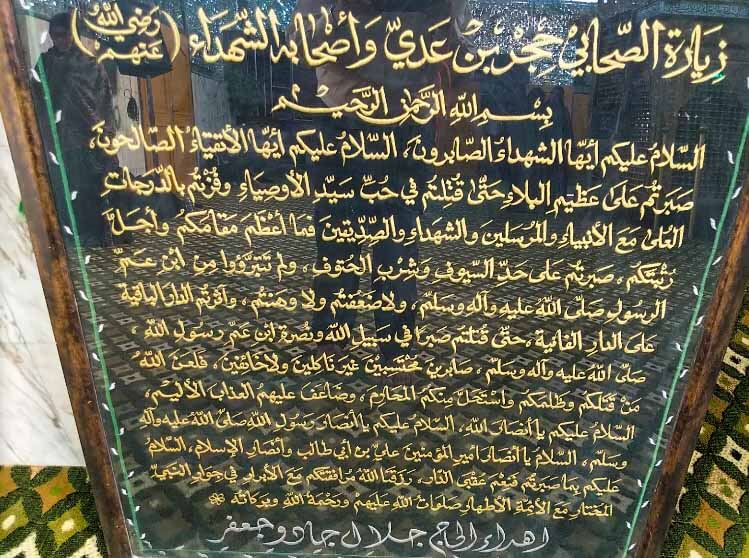 زيارة الصّحابي حجر بن عديّ وأصحابه الشّهداء (رَضِيَ اللهُ عَنهُم)
بِسْمِ اللهِ الرَّحمٰنِ الرَّحِيْمِ
السّلامُ عليكم أيّها الشهداءُ الصّابرونَ، السّلامُ عليكم أيّها الأتقياءُ الصّالحونَ،
صَبَرتُم عَلىٰ عَظيمِ البلاءِ حَتّىٰ قُتِلتُم في حُبِّ سَيِّدِ الأوصِياءِ وفُزْتُم بالدَّرجاتِ
العُلىٰ مَعَ الأنبياءِ والمُرسَلينَ والشّهداءِ والصِّدِّيقينَ فَما أعْظَمَ مَقامَكُم وأجَلَّ
رُتْبَتَكُم، صبَرتُم عَلىٰ حَدِّ السُّيوفِ وشُربِ الحُتوفِ، ولم تَتَبَرَّؤوا مِنِ ابْنِ عَمِّ
الرسولِ صَلّى اللهُ عليهِ وآلهِ وسلّم، ولا ضَعُفْتُم ولا وَهَنْتُم، وآثَرتُم الدّارَ الباقيةَ
عَلىٰ الدارِ الفانيةِ، حتّىٰ قُتِلتم صَبرًا في سَبيلِ اللهِ ونُصرةِ ابنِ عَمِّ رسولِ اللهِ،
صلّى اللهُ عَليهِ وآلهِ وسلّم، صابرينَ مُحْتَسِبينَ غيرَ ناكلينَ ولا خائفينَ، فَلَعنَ اللهُ
مَنْ قَتَلَكُم وظَلَمَكُم واسْتَحَلَّ مِنكُمُ المَحارِمَ، وضاعَفَ عليهمُ العذابَ الأليمَ،
السّلامُ عليكم يا أنصارَ اللهِ، السّلامُ عليكم يا أنصارَ رَسولِ اللهِ صلّى اللهُ عليه وآلهِ
وسلّم، السّلامُ يا أنصارَ أميرِ المؤمنينَ عليِّ بنِ أبي طالبٍ وأنصارَ الإسلامِ، السّلامُ
عليكم بِما صَبَرتُم فَنِعْمَ عُقْبَى الدّارِ، رَزَقَنا اللهُ مُرافَقَتَكُم مَعَ الأبرارِ في جِوارِ النّبيِّ
المُختارِ مَعَ الأئمّةِ الأطهارِ صلواتُ اللهِ عليهمْ ورَحْمَةُ اللهِ وبَركاتُه
اهداء الحاج جلال جادو جعفر